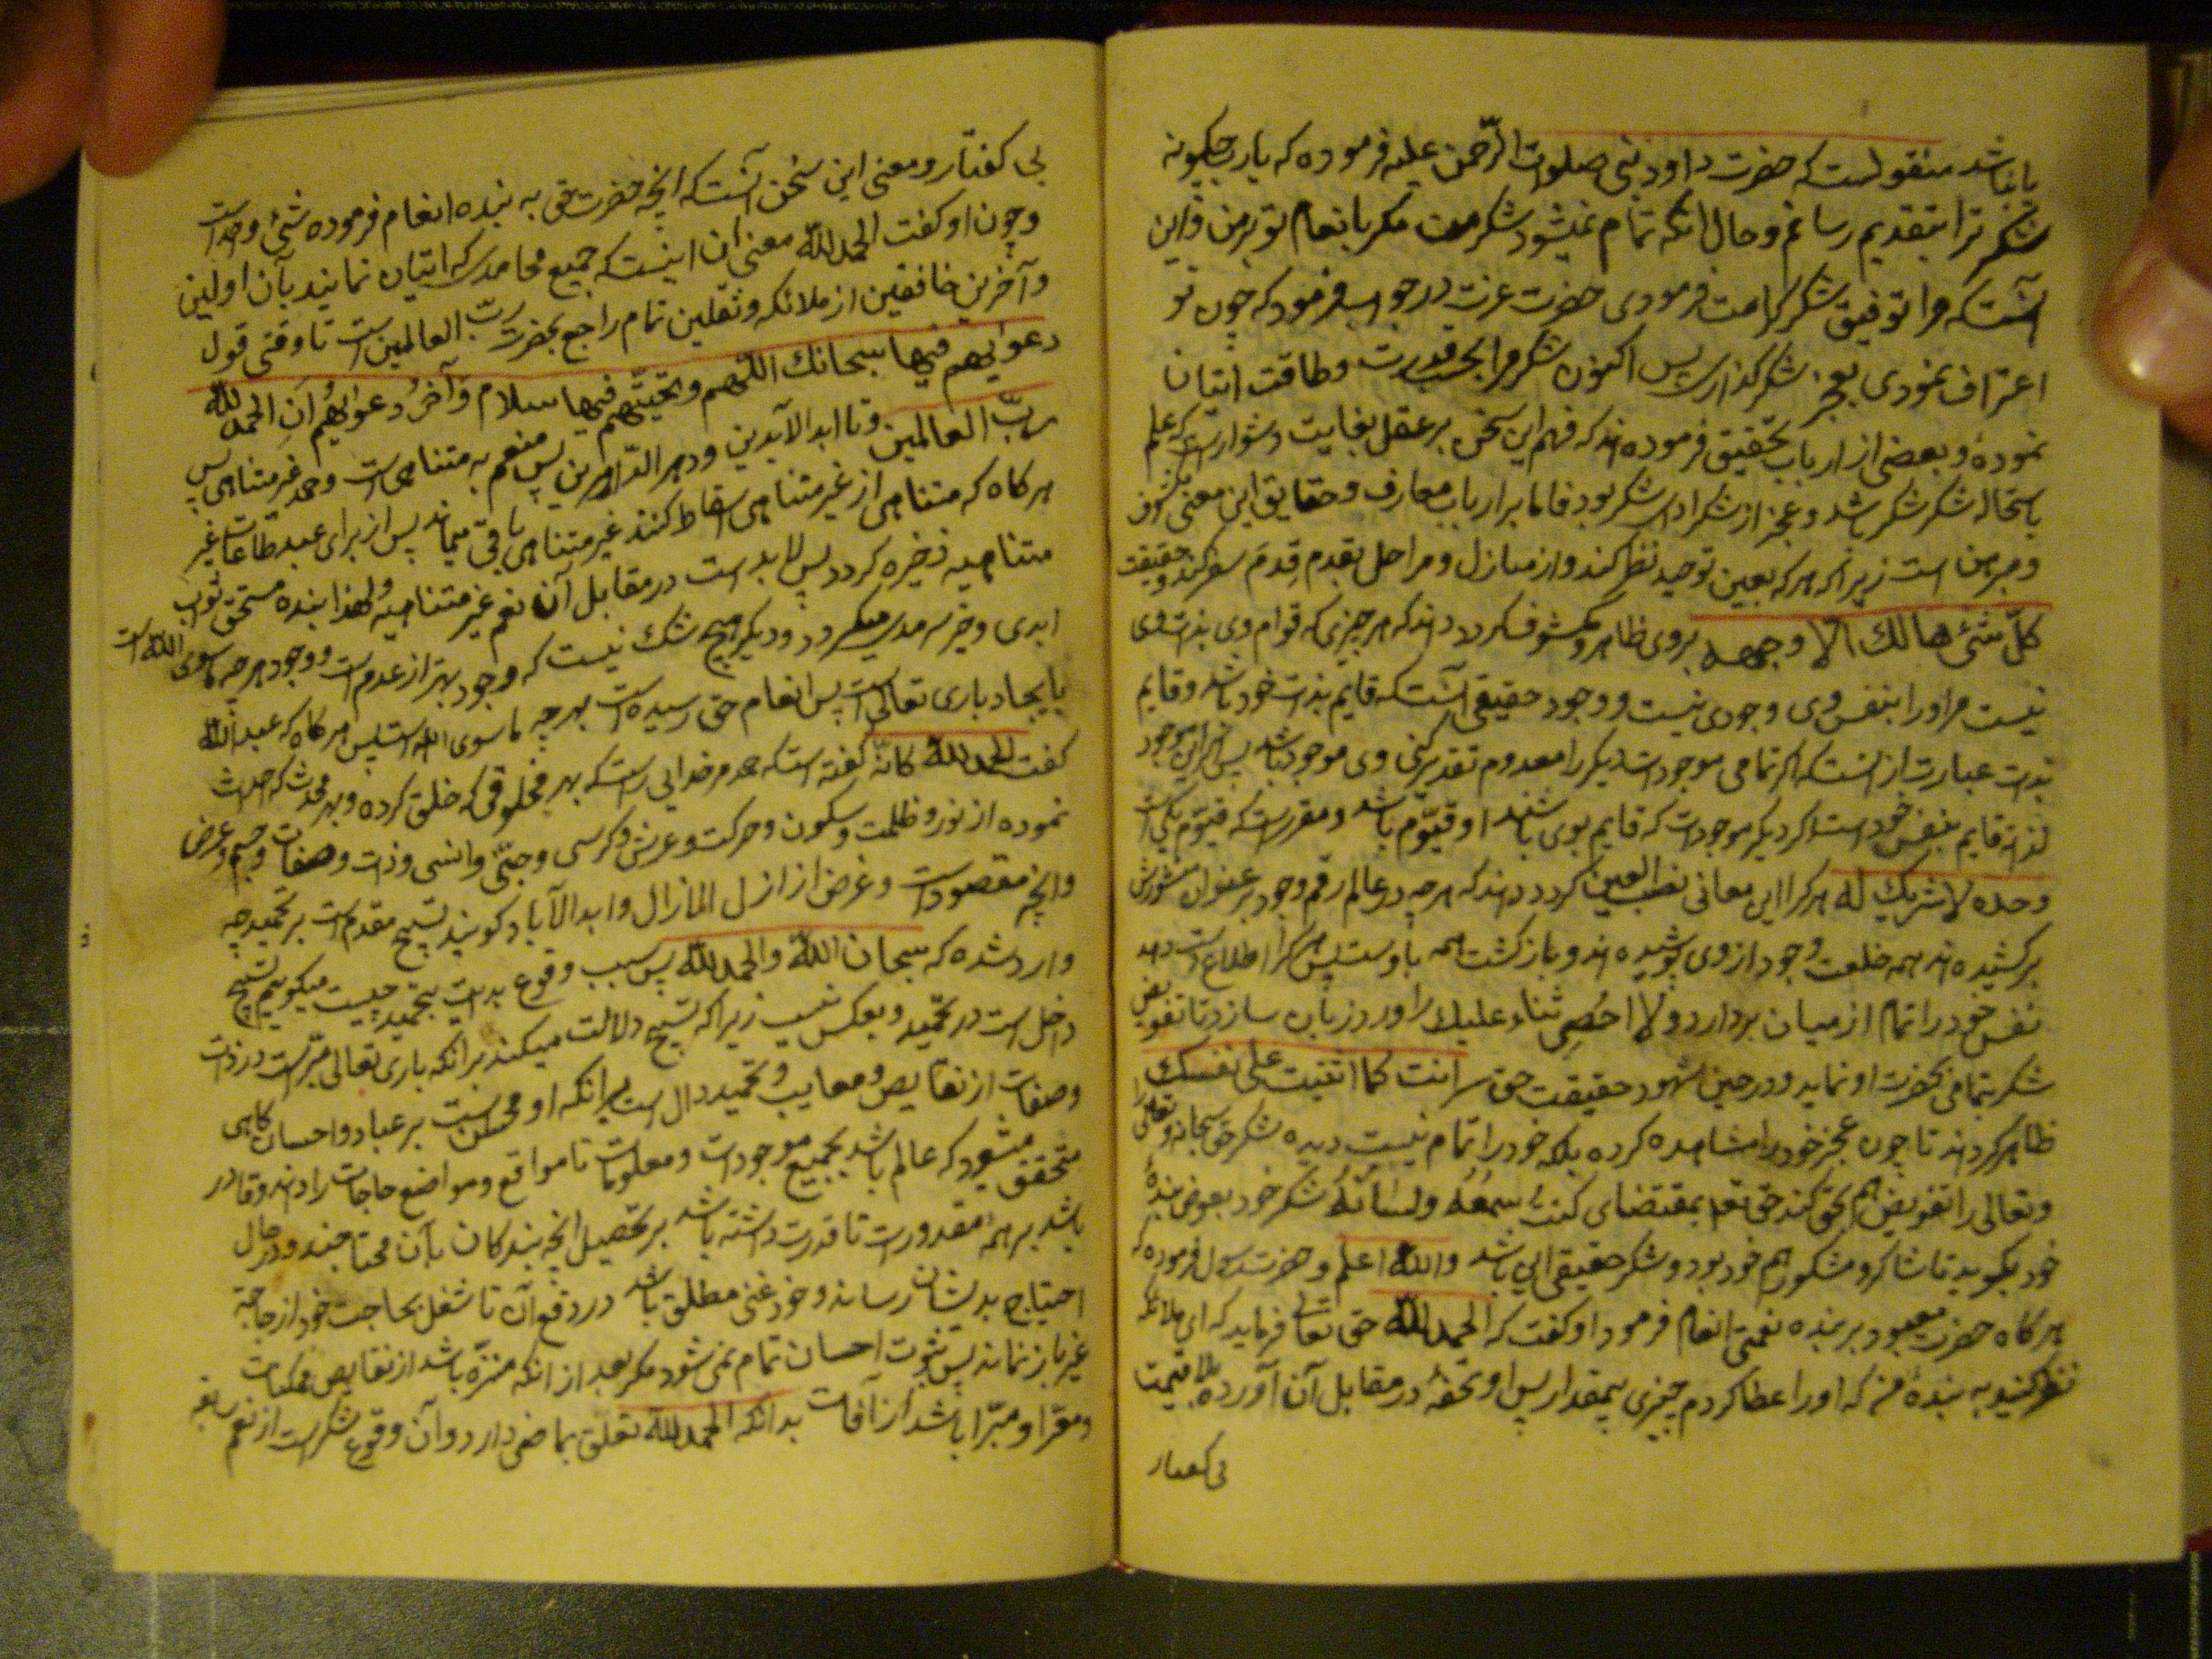 یا نباشد منقولست که حضرت داود نبی صلوات الرّحمن علیه فرموده که یا رب چگونه
شکر ترا بتقدیم رسانم و حال انکه تمام نمیشود شکر من مکر بانعام تو بر من و این
آنست که مرا توفیق شکر کرامت فرمودی حضرت عزت در جواب فرمود که چون تو
اعتراف نمودی بعجز شکرگذاری پس اکنون شکر مرا بحسب قدرت و طاقت اتیان
نمودهٔ و بعضی از ارباب تحقیق فرموده اند که فهم این سخن بر عقل بغایت دشوار است که علم
باستحاله شکر شکر باشد و عجز از شکر ادای شکر بود فاما بر ارباب معارف و حقایق این معنی مکشوف
و مبرهن است زیرا که هر که بعین توحید نظر کند و از منازل و مراحل بقدم قِدم سفر کند و حقیقت
کلّ شئ هالك الّا وجهه بر وی ظاهر و مکشوف کردد داند که هر چیزی که قوام وی بذات وی
نیست مر او را بنفس وی وجودی نیست و وجود حقیقی آنست که قایم بذات خود باشد و قایم
بذات عبارت از انست که اکر تمامی موجودات دیکر را معدوم تقدیر کنی وی موجود باشد پس اکر این موجود
لذاته قایم بنفس خود است اکر دیکر موجودات که قایم بوی باشند او قیّوم باشد و مقرر است که قیّوم یکی است
وحده لا شریك له هر کرا این معانی نصب العین کردد داند که هر چه در عالم رقم وجود بر عنوان منشورش
برکشیده اند همه خلعت وجود از وی پوشیده اند و بازکشت همه باوست پس هر کرا اطلاع دست دهد
نفس خود را تمام از میان بردارد و لا احصی ثناء علیك را ورد زبان سازد تا تفویض
شکر بتمامی بحضرت او نماید و در حین شهود حقیقت حق سر انت کما اثنیت علی نفسك
ظاهر کرداند تا چون عجز خود را مشاهده کرده بلکه خود را تمام نیست دیده شکر حق سبحانه و تعالی را
و تعالی را تفویض هم بحق کند حق تعا بمقتضای کنت سمعَهُ و لسانَهُ شکر خود بعوض بندهٔ
خود بکوید تا شاکر و مشکور هم خود بود و شکر حقیقی این باشد والله اعلم و حضرت رسول فرموده که
هر کاه حضرت معبود بر بنده نعمتی انعام فرمود او کفت که الحمد لله حق تعالی فرماید که ای ملائکه
نظر کنید به بندهٔ من که او را عطا کردم چیزی بیمقدار پس او تحفهٔ در مقابل آن آورده بلا قیمت
بی کفتار و معنی این سخن آنست که انچه حضرت حق به بنده انعام فرموده شئ واحد است
و چون او کفت الحمد لله معنی ان اینست که جمیع محامدی که اتیان نمایند بآن اولین
و آخرین خافقین از ملائکه و ثقلین تمام راجع بحضرت ربّ العالمین است تا وقتی قول
دعواهیم فیها سبحانك اللّهم و تحیّتهم فیها سلام و آخرُ دعواهُم أن الحمد لله
ربّ العالمین و تا ابد الآبدین و دهر الدّاهرین پس منعم به متناهی است و حمد غیر متناهی پس
هر کاه که متناهی از غیر متناهی اسقاط کنند غیر متناهی باقی میماند پس از برای عبد طاعات غیر
متناهیه ذخیره کردد پس لابد است در مقابل آن نعم غیر متناهیه و لهذا بنده مستحق ثواب
ابدی و خیر سرمدی میکردد و دیکر هیچ شك نیست که وجود بهتر از عدم است و وجود هر چه ماسوی الله است
بایجاد باری تعالی است پس انعام حق رسیده است بهر چه ماسوی الله است پس هر کاه که عبد الله
کفت الحمد لله کانّه کفته است که حمد مر خدایی راست که بهر مخلوقی که خلق کرده و بهر محدث که احداث
نموده از نور و ظلمت و سکون و حرکت و عرش و کرسی و جنّی و انسی و ذات و صفات و جسم و عرض
و انچه مقصود است و غرض از ازل الازال و ابد الآباد کویند تسبیح مقدم است بر تحمید چه
وارد شده که سبحان الله والحمد لله پس سبب وقوع بدایت بتحمید چیست میکوییم تسبیح
داخل است در تحمید و بعکس نیست زیرا که تسبیح دلالت میکند برانکه باری تعالی مبرّاست در ذات
و صفات از نقایص و معایب و تحمید دال است برانکه او محسن است بر عباد و احسان کاهی
متحقق میشود که عالم باشد بجمیع موجودات و معلومات تا مواقع و مواضع حاجات را داند و قادر
باشد بر همه مقدورات تا قدرت داشته باشد بر تحصیل انچه بندکان بآن محتاجند و در حال
احتیاج بدیشان رساند و خود غنی مطلق باشد در دفع آن تا شغل بحاجت خود از حاجة
غیر باز نماند پس ثبوت احسان تمام نمی شود مکر بعد از انکه منزّه باشد از نقایص ممکنات
و معرّا و مبرّا باشد از آفات بدانکه الحمد لله تعلق بماضی دارد و آن وقوع شکر است از نعم سابقه